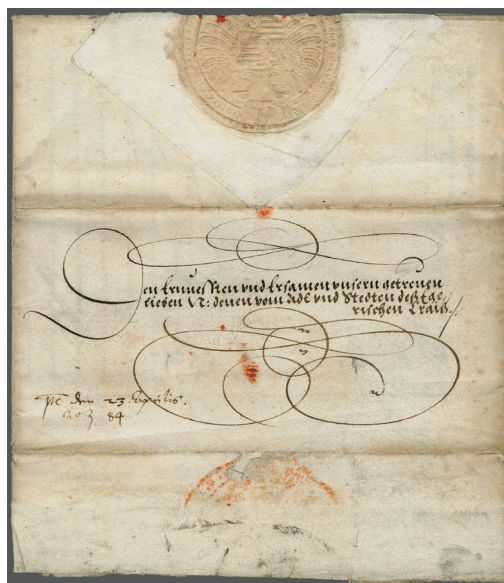 Den Ernuessten vnd Ersamen vnsern getreuen
lieben N: denen vom Adl vnd Stedten deß Ege
rischen Craiß.
den 23 Aprilis.
84